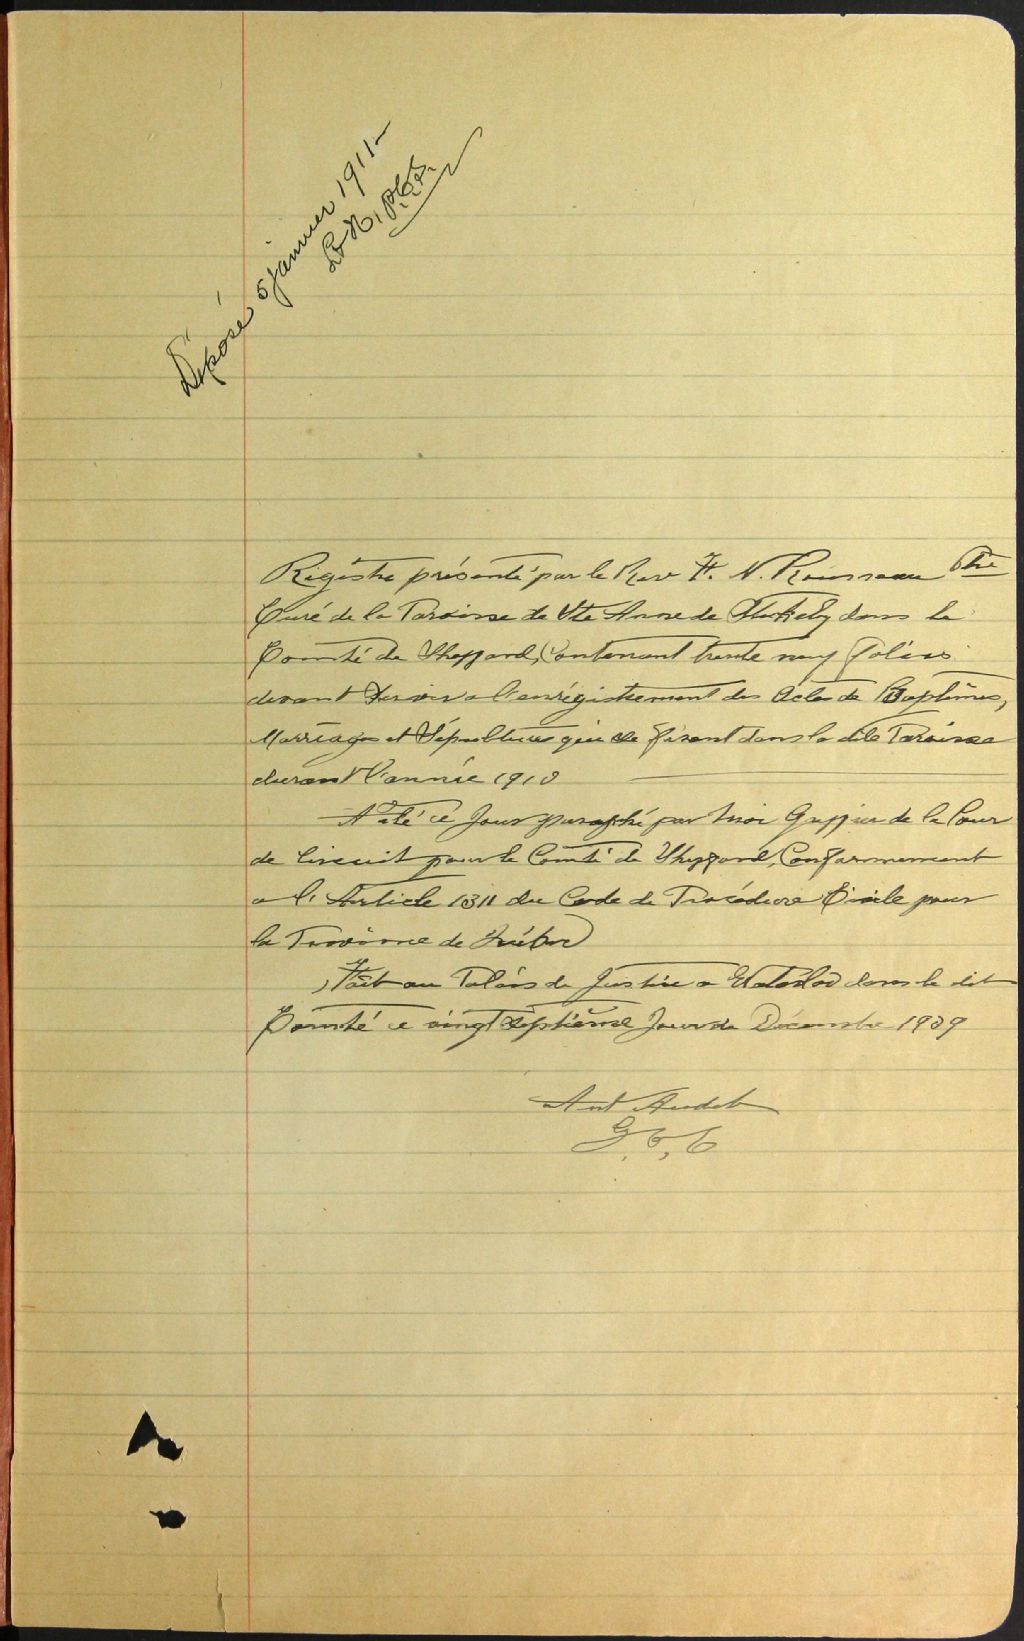 Déposé 5 janvier 1911
Régistre présenté par le Rev F. N. Rousseau Ptre
Curé de la Paroisse de Ste Anne de Stukely dans le
Comté de Shefford, Contenant trente neuf foléos
devant servir a l'enrégistrement des Actes de Baptêmes,
Marriages et Sépultures qui se feront dans la dite Paroisse
durant l'année 1910
A été ce Jour paraphé par moi Greffier de la Cour
de Circuit pour le Comté de Shefford, Conformement
a l'Article 1311 du Code de Procédure Civile pour
la Province de Québec
Fait au Palais de Justice a Waterloo dans le dit
Comté ce vingt septième Jour de Décembre 1909
Ant Audet
G, C, C